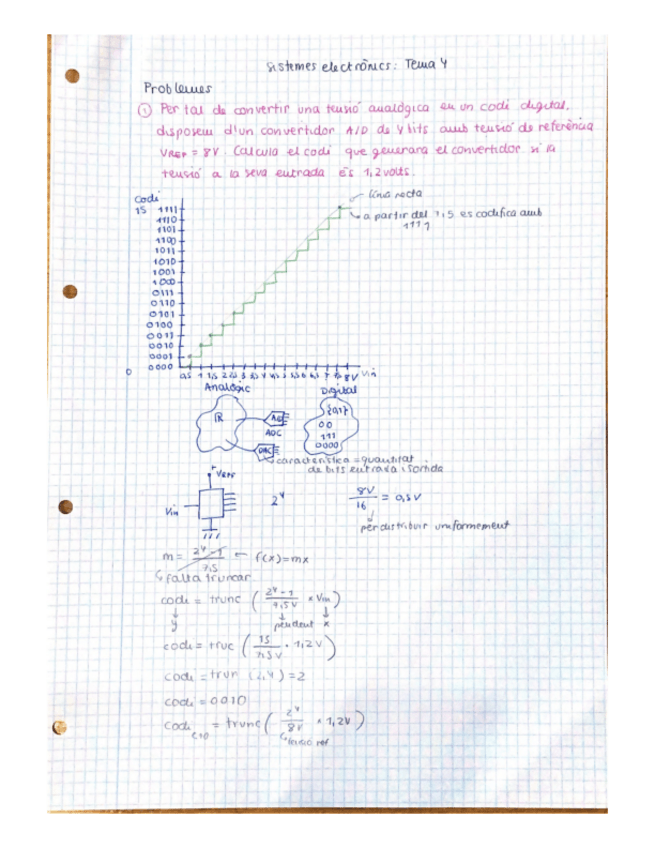 Sistemes electrònics: Tema 4
Problemes
① Per tal de convertir una tensió analògica en un codi digital,
disposem d'un convertidor A/D de 4 bits amb tensió de referència
VREF = 8V. Calcula el codi que generara el convertidor si la
tensió a la seva entrada és 1,2 volts.
línia recta
Codi
a partir del 7,5 es codifica amb
1111
15 1111
1110
1101
1100
1011
1010
1001
1000
0111
0110
0101
0100
0011
0010
0001
0 0000
0,5 1 1,5 2 8V Vin
Analògic Digital
IR
ADC
{0,1}
00
111
0000
DAC
característica = quantitat
de bits entrada i sortida
+ VREF
Vin
2⁴
8V/16 = 0,5V
per distribuir uniformement
m = 2⁴-1/7,5 ← f(x)=mx
↳ falta truncar
codi = trunc (2⁴-1/7,5V × Vin)
y pendent x
codi = truc (15/7,5V · 1,2V)
codi = trun (2,4) = 2
codi = 0010
codi = trunc (2⁴/8V × 1,2V)
↳ tensió ref